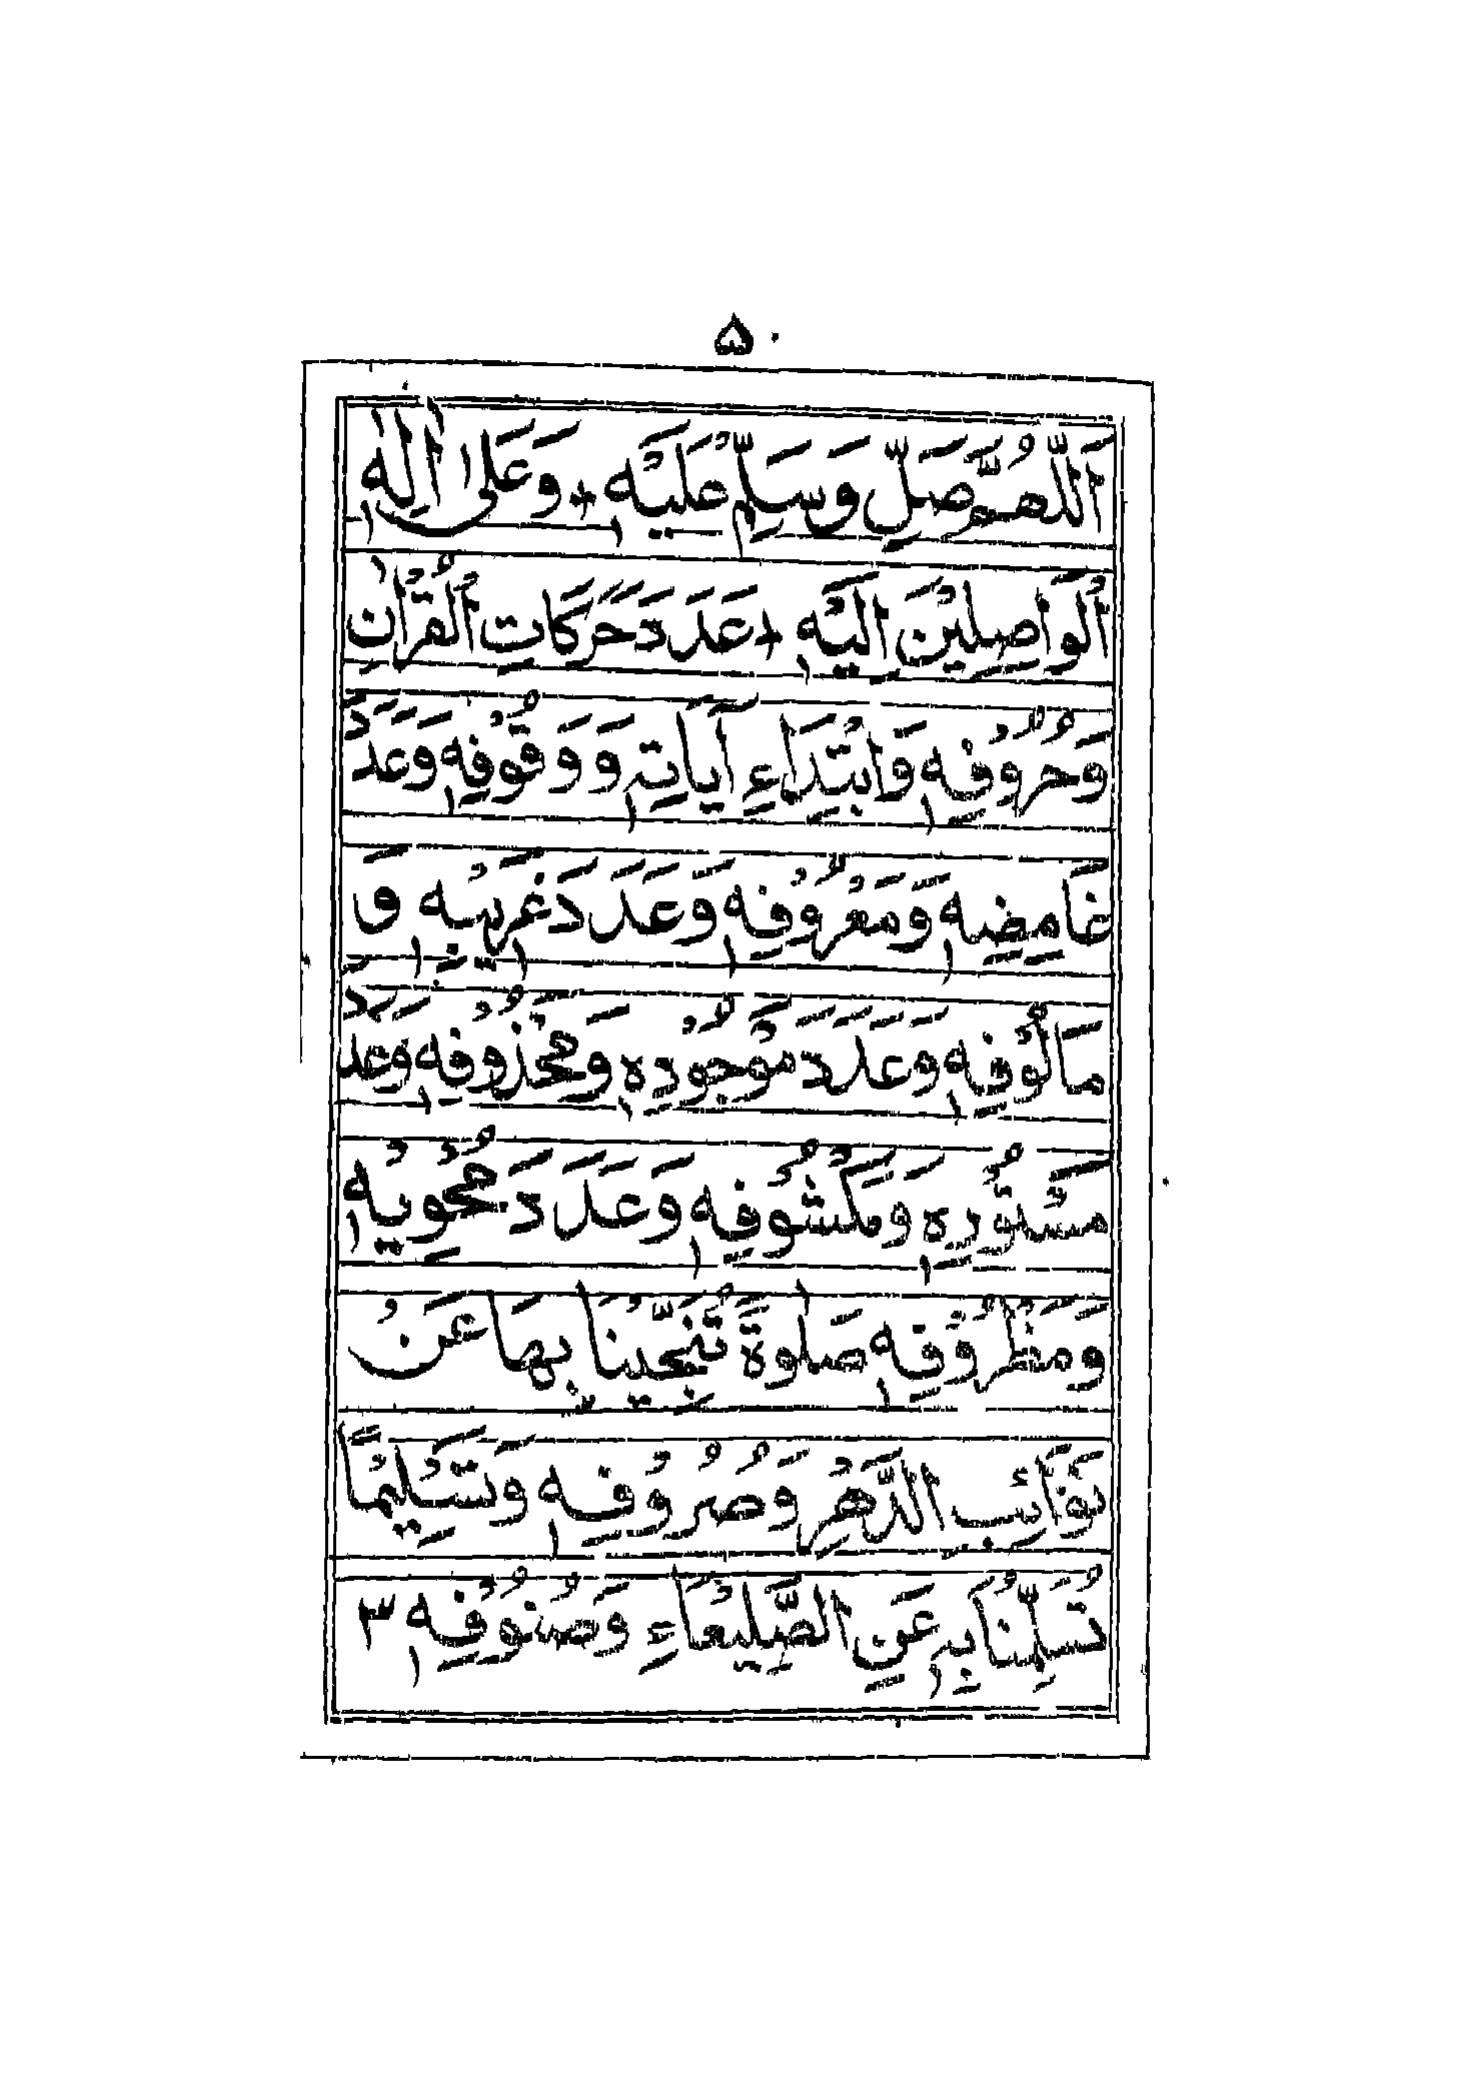 ۵۰
اَللّٰهُمَّ صَلِّ وَسَلِّمْ عَلَيْهِ + وَعَلٰى اٰلِهٖ
الْوَاصِلِيْنَ اِلَيْهِ + عَدَدَ حَرَكَاتِ الْقُرْاٰنِ
وَحُرُوْفِهٖ وَابْتِدَاءِ آيَاتِهٖ وَوُقُوْفِهٖ وَعَدَدَ
غَامِضِهٖ وَمَعْرُوْفِهٖ وَعَدَدَ غَرِيْبِهٖ وَ
مَالُوْفِهٖ وَعَدَدَ مَوْجُوْدِهٖ وَمَحْذُوْفِهٖ وَعَدَدَ
مَسْتُوْرِهٖ وَمَكْشُوْفِهٖ وَعَدَدَ مَحْجُوْبِهٖ
وَمَظْرُوْفِهٖ صَلٰوةً تُنَجِّيْنَا بِهَا عَنْ
نَوَائِبِ الدَّهْرِ وَصُرُوْفِهٖ وَتَسْلِيْمًا
تُسَلِّمُنَا بِهٖ عَنِ الصَّلِيْعَاءِ وَصُنُوْفِهٖ ۳